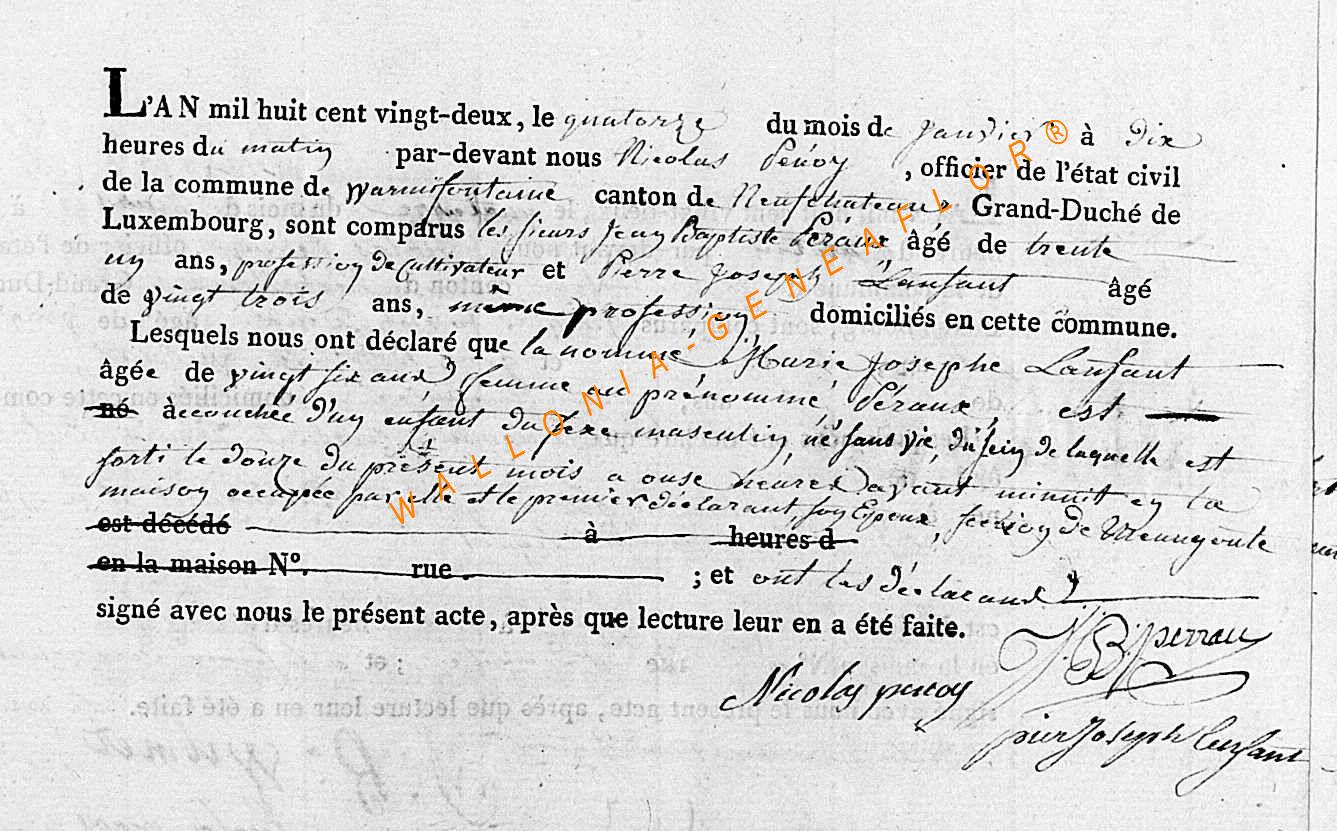 L'AN mil huit cent vingt-deux, le quatorze du mois de janvier à dix
heures du matin par-devant nous Nicolas Penoy, officier de l'état civil
de la commune de Warmifontaine canton de Neufchateau, Grand-Duché de
Luxembourg, sont comparus les sieurs Jean Baptiste Péraux, âgé de trente
un ans, profession de Cultivateur et Pierre Joseph Lanfant âgé
de vingt trois ans, même profession, domiciliés en cette commune.
Lesquels nous ont déclaré que la nommée Marie Josephe Lanfant
âgée de vingt six ans, femme au prénommé Péraux, est
né accouchée d'un enfant du sexe masculin, né sans vie, du sein de laquelle est
sorti le douze du présent mois a onse heures avant minuit en la
maison occupée par elle et le premier déclarant, son Epoux, section de
est décédé à heures d
en la maison N°. rue ; et ont les déclarans
signé avec nous le présent acte, après que lecture leur en a été faite.
J B perrau
Nicolas penoy
pier Joseph lenfant
WALLONIA-GENEAFLOR®